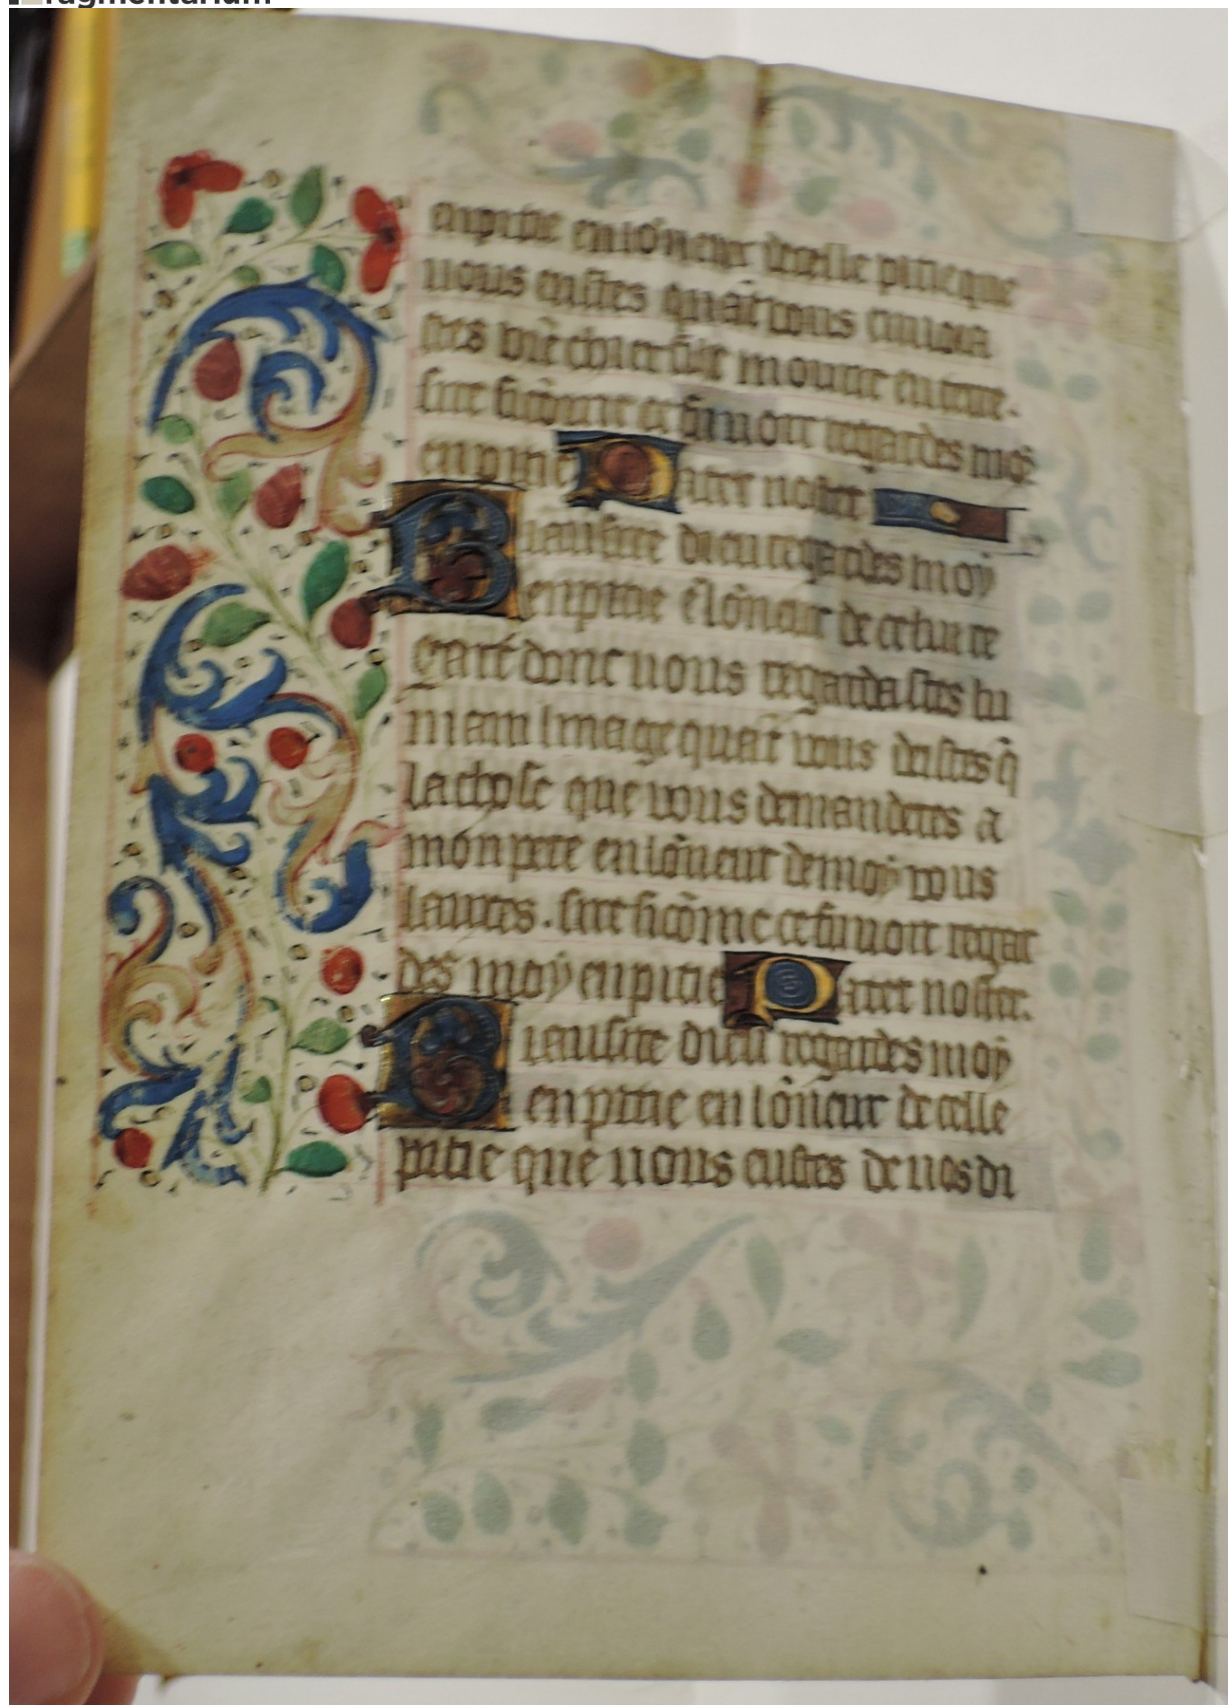 fragmentarium
en pitie en lōneur de celle pitie que
uous eustes quāt vous enuoia
stes vr̄e chier filz mourir en terre.
sire si cōme ce fu uoir regardes moy
en pitie Pater noster
Biau sire dieu regardes moy
en pitie ē lōneur de celui re
gart donc uous regardastes hu
main lmage quāt vous deistes q̄
la chose que vous demanderes a
mon pere en lōneur de moy vous
laures. sire si cōme ce fu uoir regar
des moy en pitie Pater noster.
Biau sire dieu regardes moy
en pitie en lōneur de celle
pitie que uous eustes de uos di